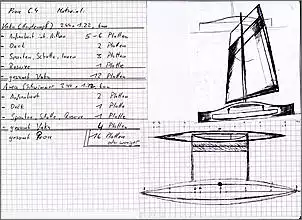 Proa C.4 Material
Vaka (Hauptrumpf) 2.44 x 1.22, 6mm
- Außenhaut 5-6 Platten
- Deck 2 Platten
- Spanten, Schotte, Innen 3 Platten
- Reserve 1 Platte
- gesamt Vaka 12 Platten
Ama (Schwimmer) 2.44 x 1.22
- Außenhaut 2 Platten
- Deck 1 Platte
- Spanten, Schotte, Reserve 1 Platte
- gesamt 4 Platten
gesamt Proa 16 Platten
oder weniger